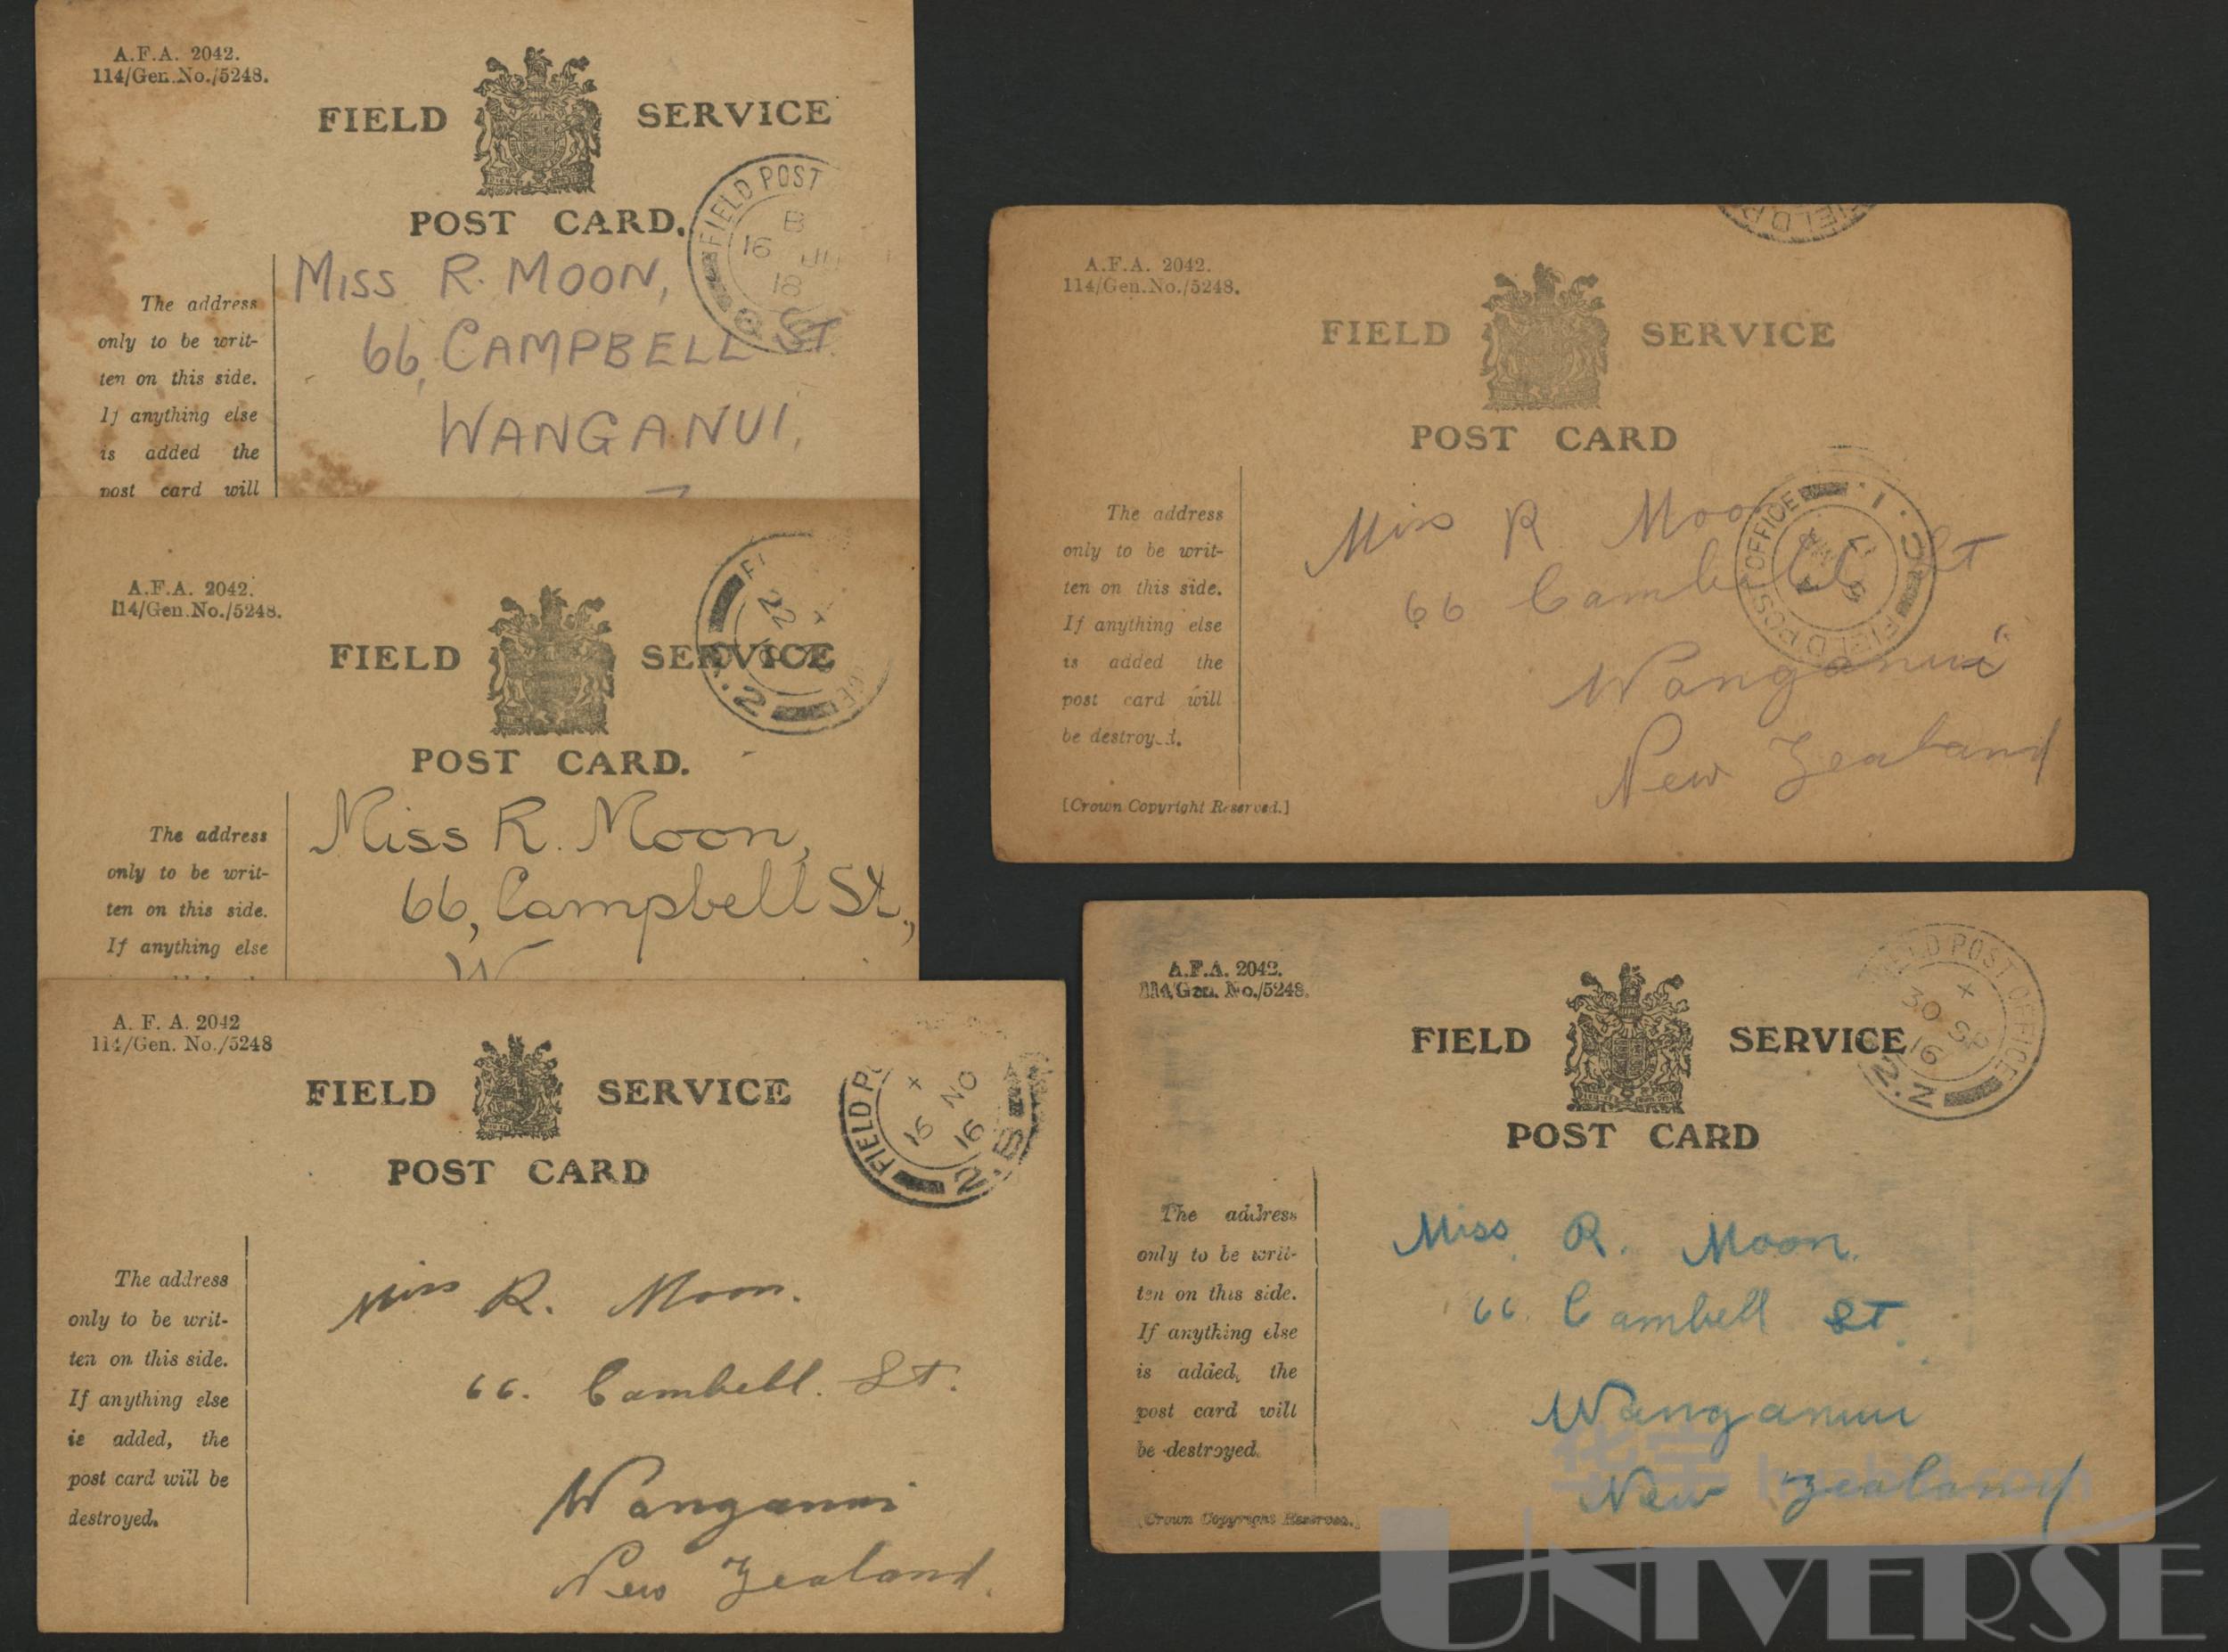 A.F.A. 2042.
114/Gen.No./5248.
FIELD SERVICE
POST CARD.
FIELD POST
B
16 JU
18
MISS R. MOON,
66, CAMPBELL ST
WANGANUI,
The address
only to be writ-
ten on this side.
If anything else
is added the
post card will
A.F.A. 2042.
114/Gen.No./5248.
FIELD SERVICE
POST CARD.
22
Miss R. Moon,
66, Campbell St.,
The address
only to be writ-
ten on this side.
If anything else
A. F. A. 2042
114/Gen. No./5248
FIELD SERVICE
POST CARD
FIELD
X
15 NO
16
Miss R. Moon.
66. Cambell. St.
Wanganui
New Zealand.
The address
only to be writ-
ten on this side.
If anything else
is added, the
post card will be
destroyed.
A.F.A. 2042.
114/Gen.No./5248.
FIELD SERVICE
POST CARD
FIELD POST OFFICE
Miss R Moon
66 Cambell St
Wanganui
New Zealand
The address
only to be writ-
ten on this side.
If anything else
is added the
post card will
be destroyed.
[Crown Copyright Reserved.]
A.F.A. 2042.
114/Gen. No./5248.
FIELD SERVICE
POST CARD
FIELD POST OFFICE
X
30 SP
16
N.Z
Miss R. Moon.
66. Cambell St.
Wanganui
New Zealand
The address
only to be writ-
ten on this side.
If anything else
is added, the
post card will
be destroyed.
(Crown Copyright Reserved.)
UNIVERSE